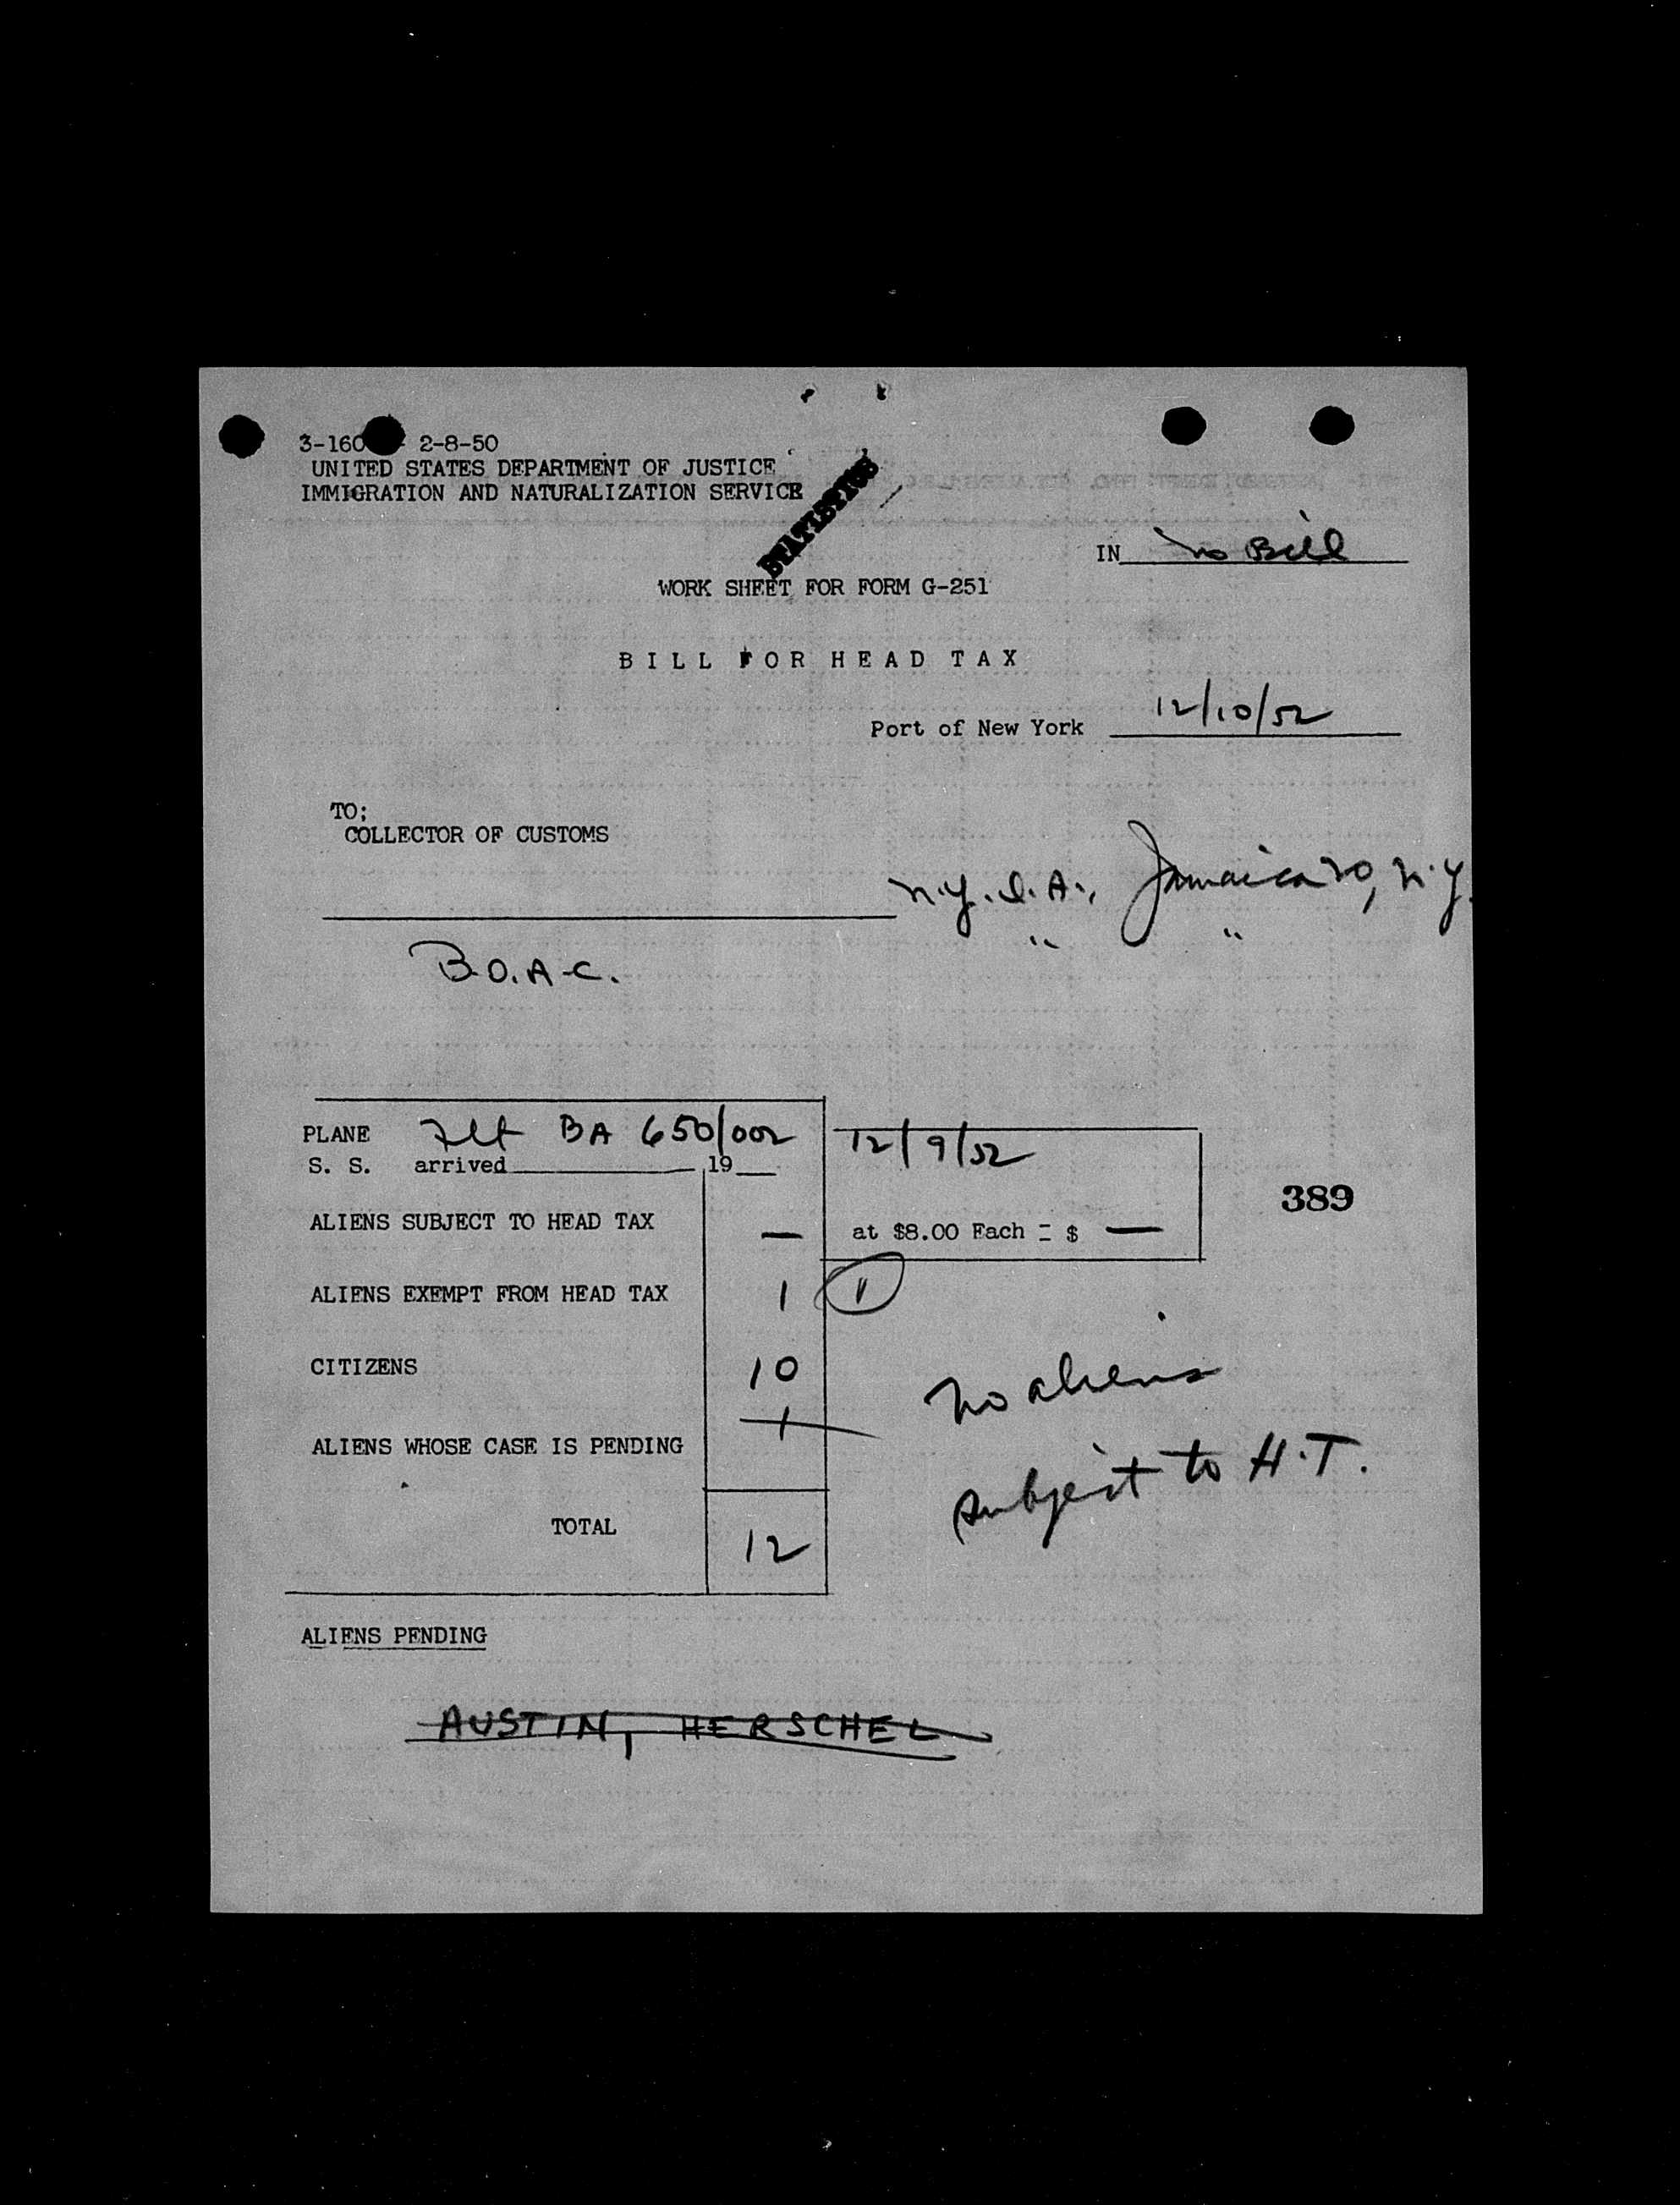 3-160 2-8-50
UNITED STATES DEPARTMENT OF JUSTICE
IMMIGRATION AND NATURALIZATION SERVICE
STATISTICS
IN No Bill
WORK SHEET FOR FORM G-251
BILL FOR HEAD TAX
Port of New York 12/10/52
TO;
COLLECTOR OF CUSTOMS
N.Y.I.A., Jamaica 20, N.Y.
" "
B.O.A.C.
PLANE Flt BA 650/002 12/9/52
S. S. arrived 19
389
ALIENS SUBJECT TO HEAD TAX — at $8.00 Each = $ —
ALIENS EXEMPT FROM HEAD TAX 1
CITIZENS 10
No aliens
ALIENS WHOSE CASE IS PENDING 1
subject to H.T.
TOTAL 12
ALIENS PENDING
AUSTIN, HERSCHEL